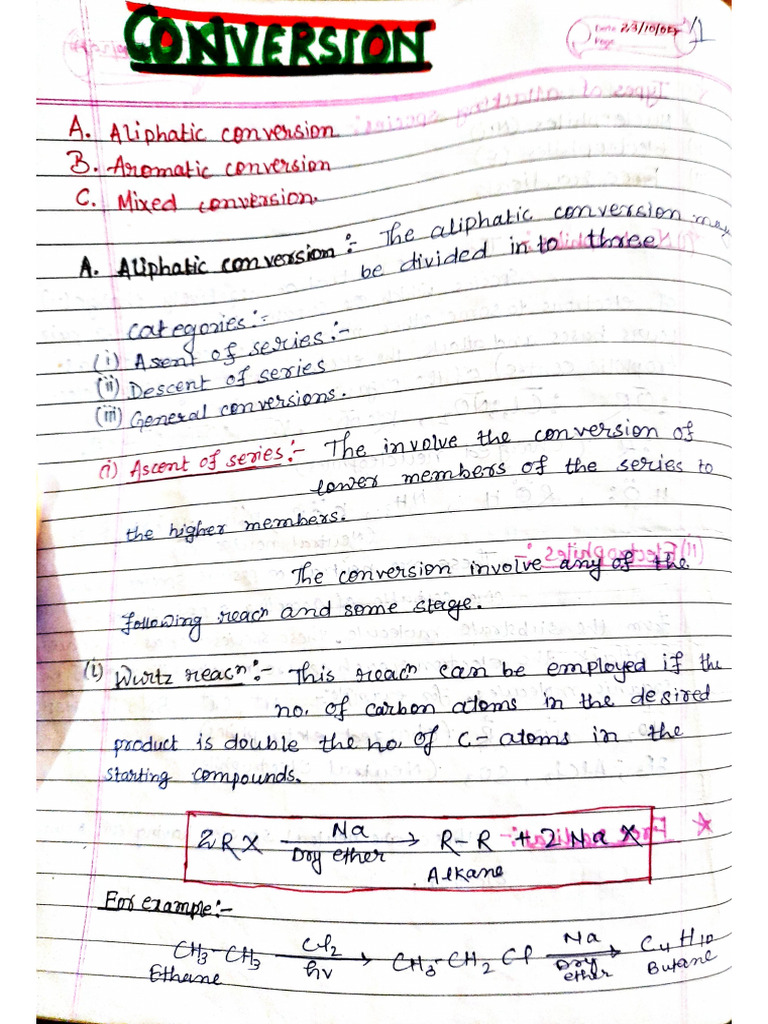 CONVERSION
Date 23/10/
Page
1
A. Aliphatic conversion
B. Aromatic conversion
C. Mixed conversion.
A. Aliphatic conversion :- The aliphatic conversion may
be divided in to three
categories:-
(i) Asent of series:-
(ii) Descent of series
(iii) General conversions.
(i) Ascent of series:- The involve the conversion of
lower members of the series to
the higher members.
The conversion involve any of the
following reacn and some stage.
(i) Wurtz reacn:- This reacn can be employed if the
no. of carbon atoms in the desired
product is double the no. of C-atoms in the
starting compounds.
2RX —Na/Dry ether→ R-R + 2NaX
Alkane
For example:-
CH3-CH3 —Cl2/hv→ CH3-CH2Cl —Na/Dry ether→ C4H10
Ethane Butane